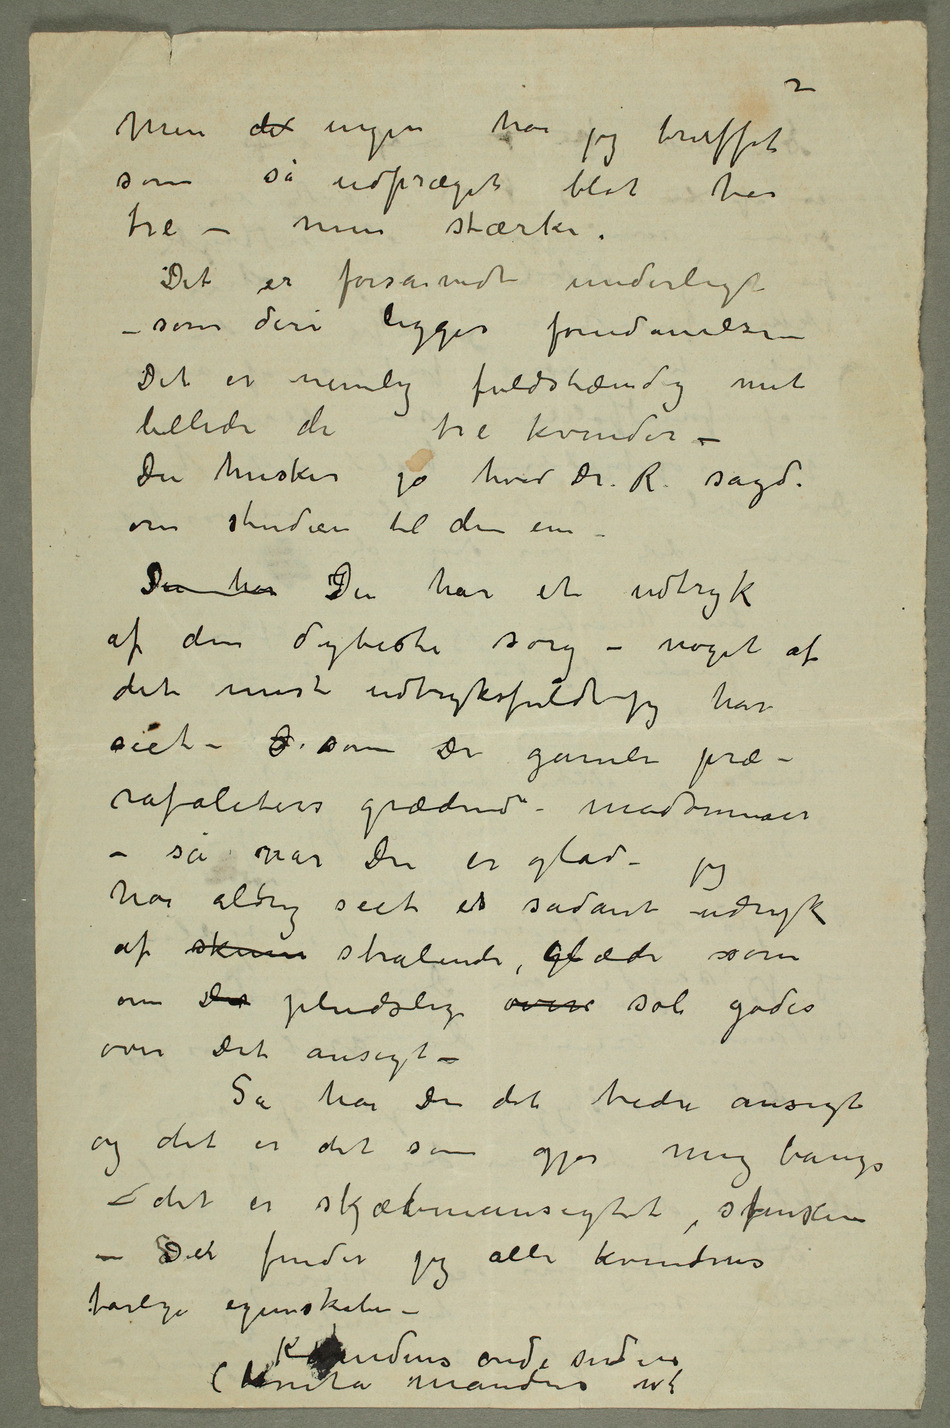 2
Men det ingen har jeg truffet
som så udpræget blot har
tre – men stærke.
Det er forsåvidt underligt
– som deri ligger foruda­nelse –
Det er nemlig fuldstændig mit
billede de tre kvinder –
Du husker jo hvad Dr. R. sagde
om studien til den ene –
Du har Du har et udtryk
af den dybeste sorg – noget af
det mest udtryksfuldt jeg har
seet – D. som de gamle præ-
rafaliters grædende madonnaer
– så når Du er glad – jeg
har aldrig seet et sådant udtryk
af skinn strålende, glæde som
om Det pludslig over sol gødes
over Dit ansigt –
Så har Du det tredie ansigt
og det er det som gjør mig bange
– det er skjæbneansigtet, sfinxen
– Det finder jeg alle kvindens
farlige egenskaber –
Kvindens onde siden
mandens